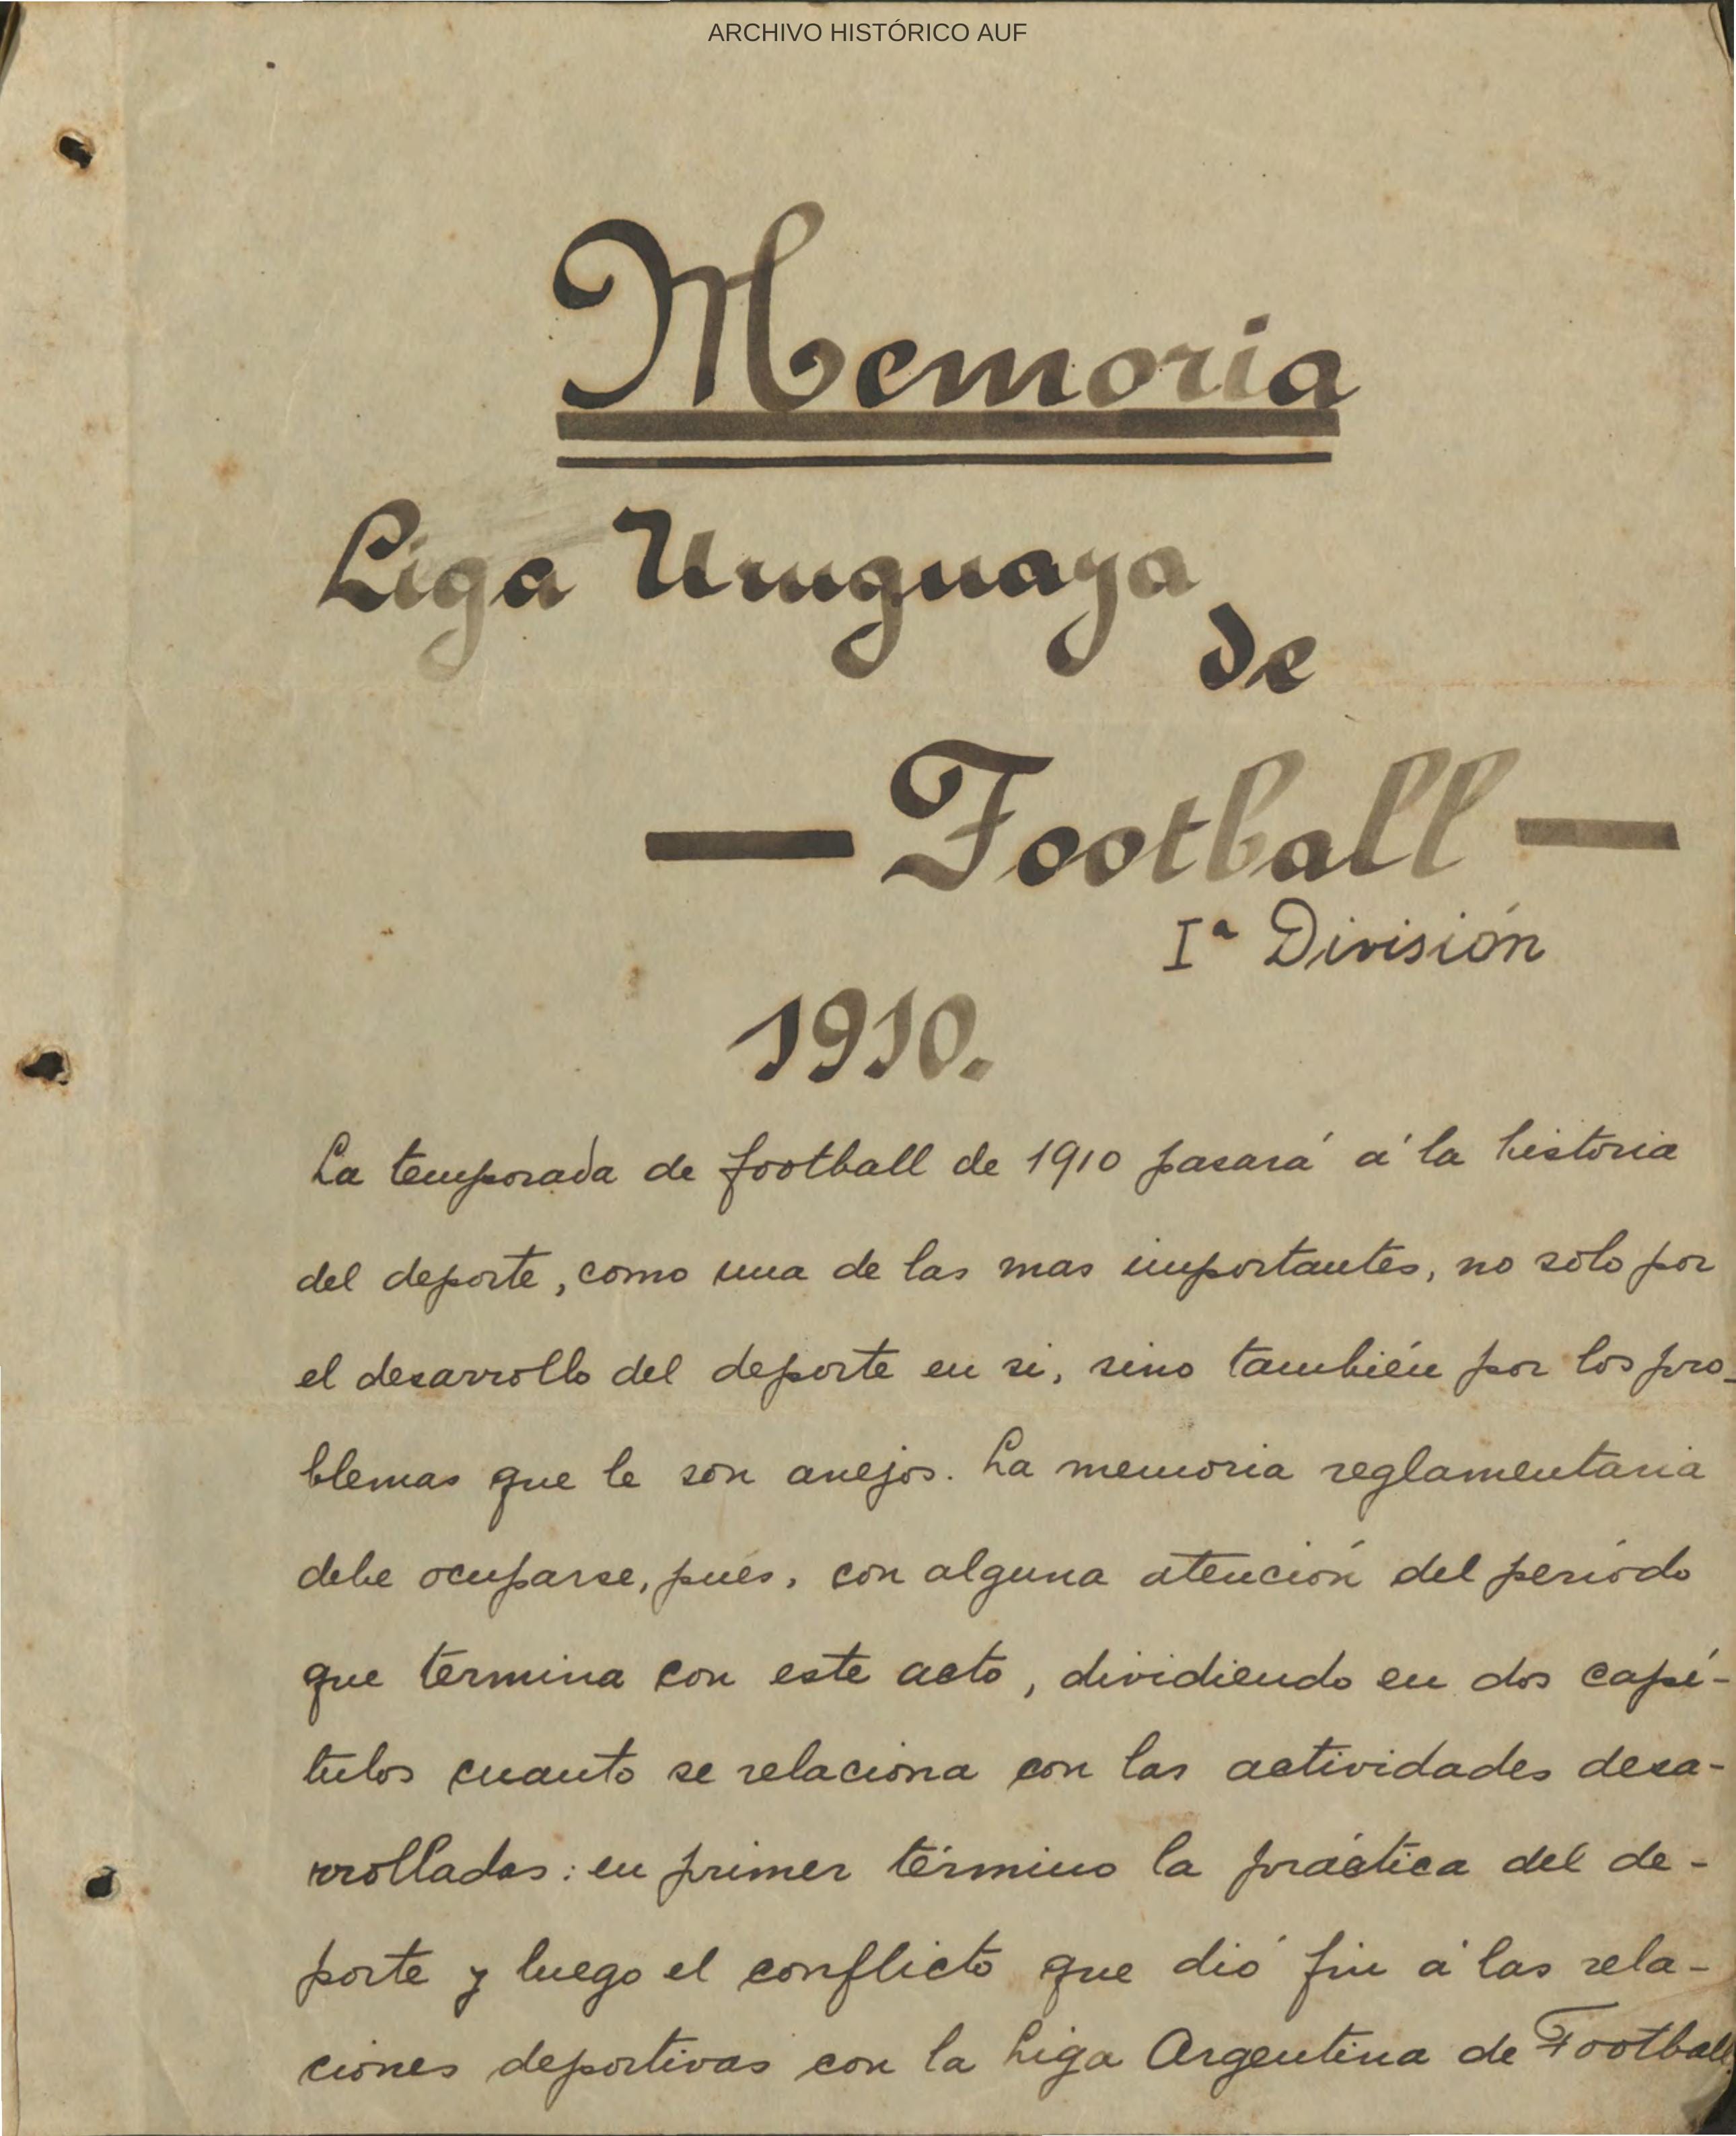 ARCHIVO HISTÓRICO AUF
Memoria
Liga Uruguaya
de
— Football —
Iª División
1910.
La temporada de football de 1910 pasará á la historia
del deporte, como una de las mas importantes, no sólo por
el desarrollo del deporte en si, sino también por los pro-
blemas que le son anejos. La memoria reglamentaria
debe ocuparse, pués, con alguna atención del período
que termina con este acto, dividiendo en dos capí-
tulos cuanto se relaciona con las actividades desa-
rrolladas: en primer término la práctica del de-
porte y luego el conflicto que dió fin á las rela-
ciones deportivas con la Liga Argentina de Football